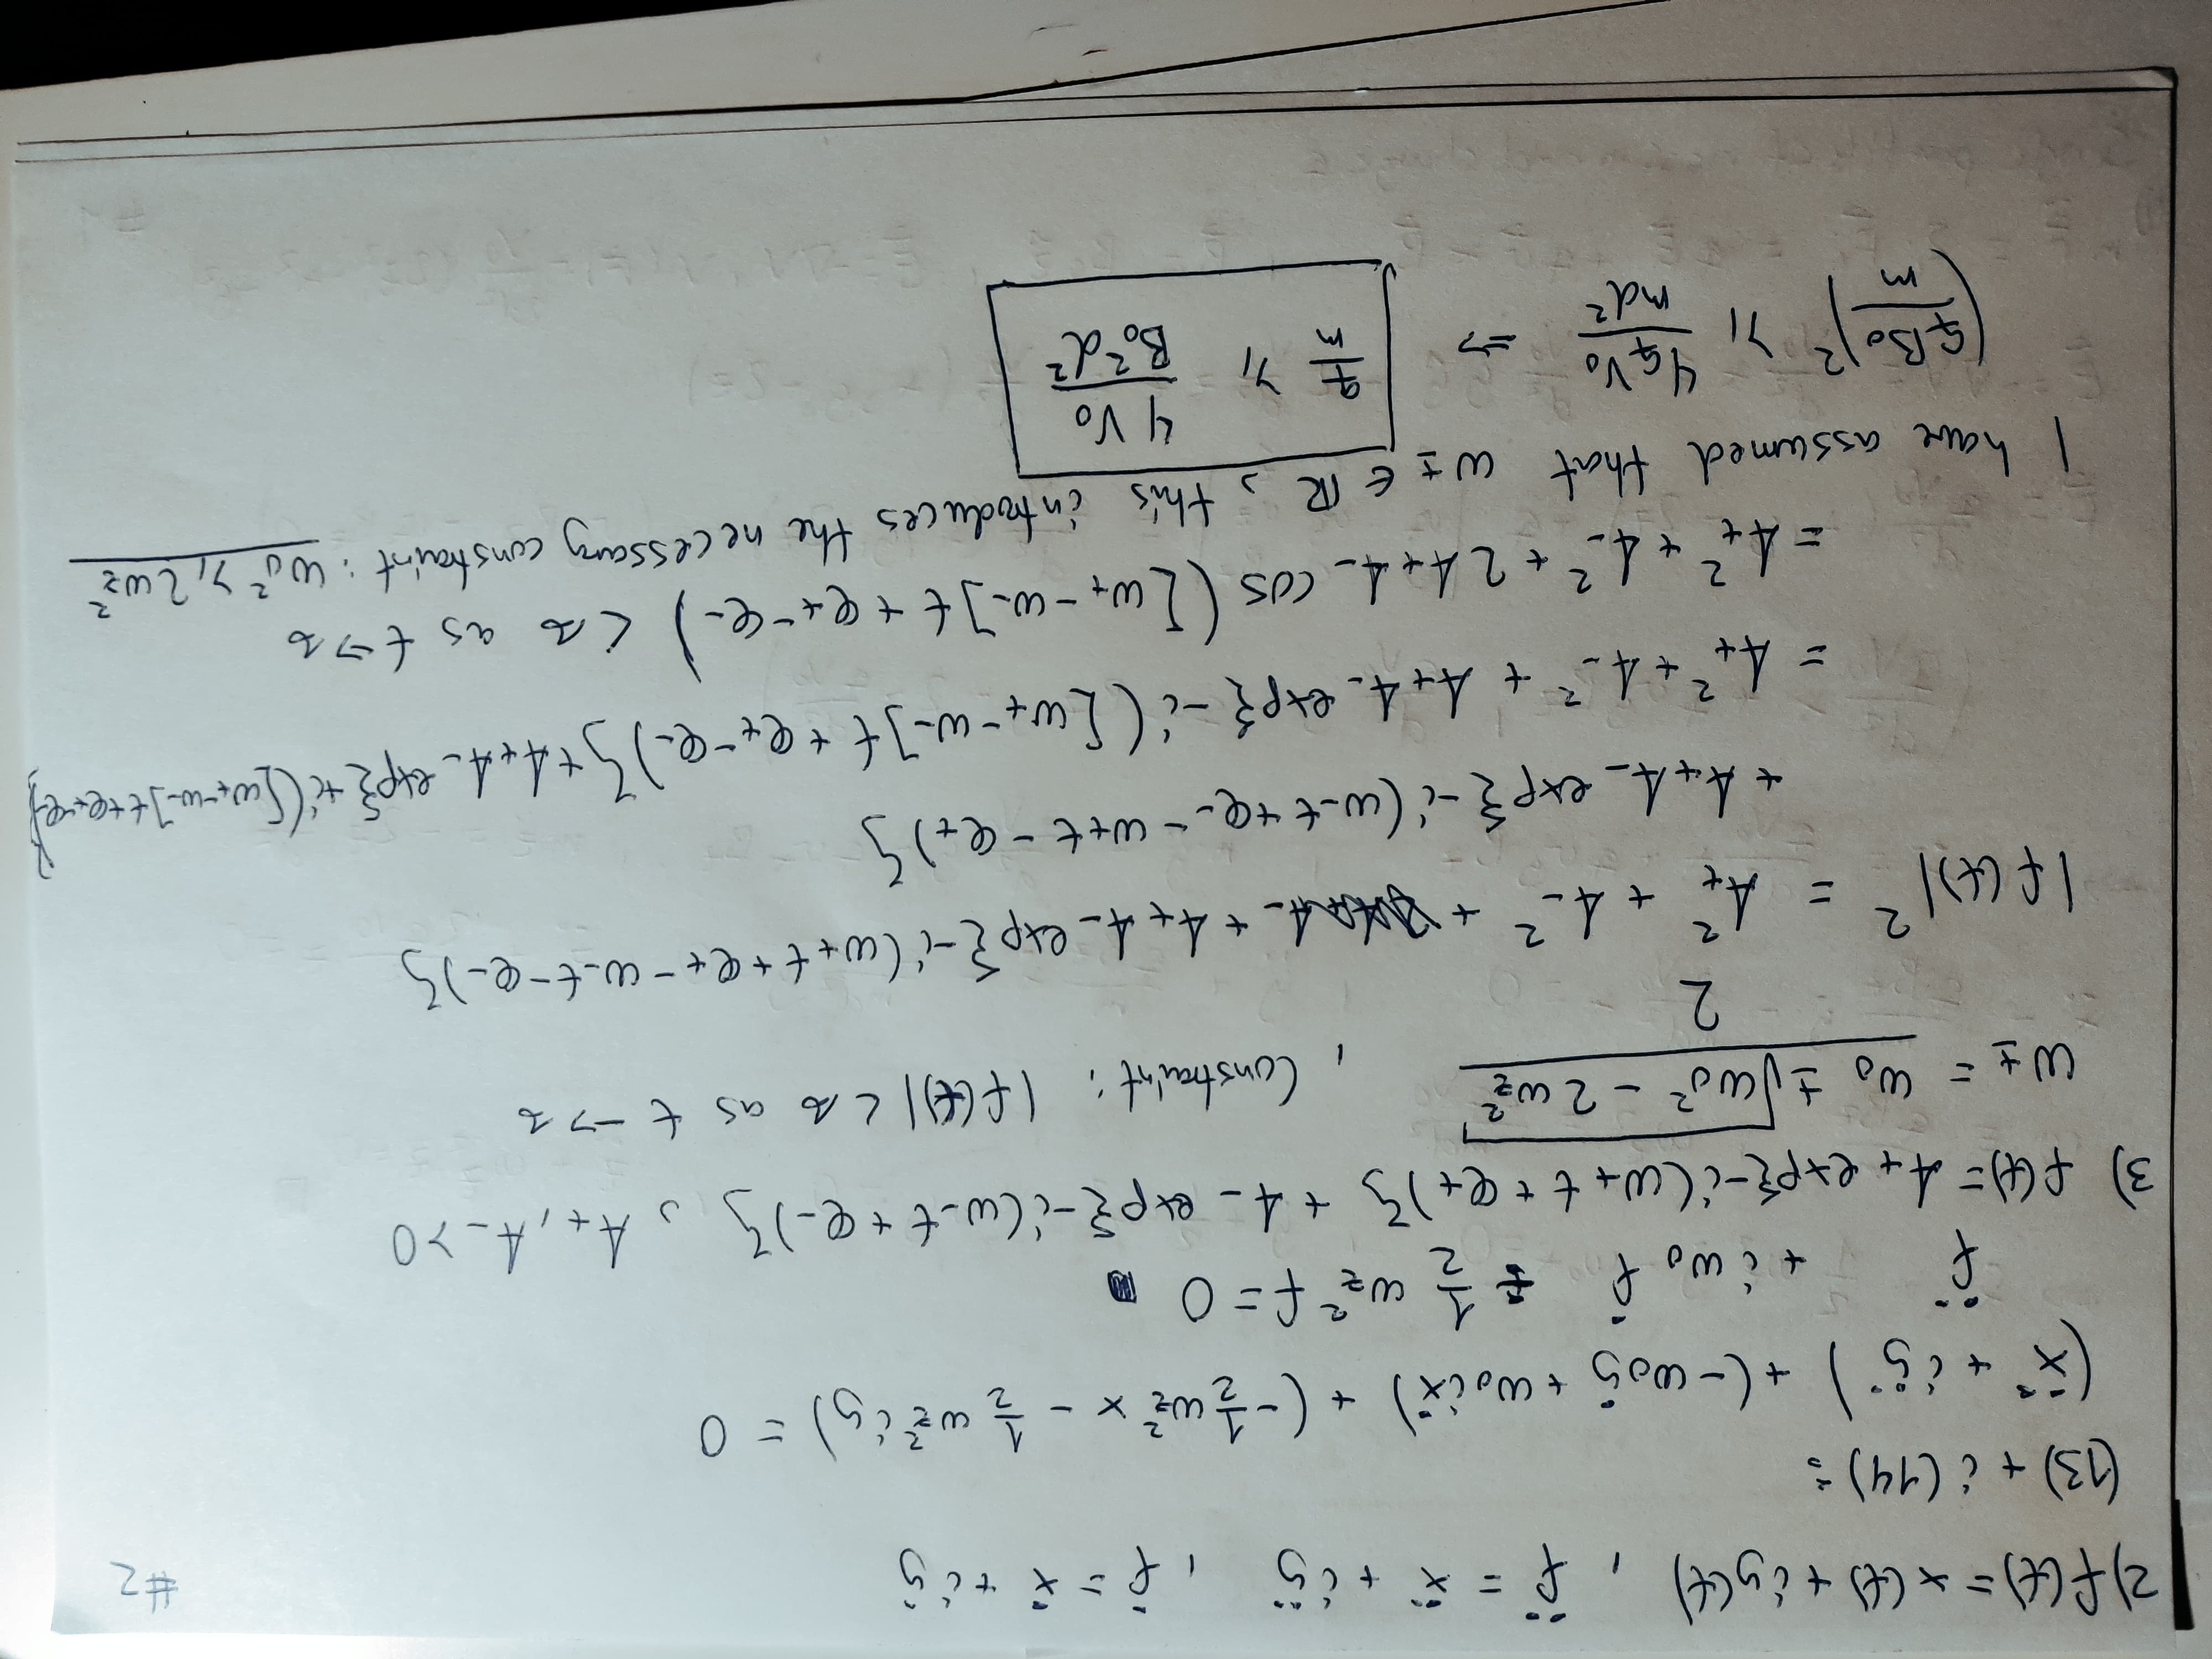 #2
2) f(t) = x(t) + iy(t) , f̈ = ẍ + iÿ , ḟ = ẋ + iẏ
(13) + i (14) :
(ẍ + iÿ) + (-ω₀ẏ + ω₀iẋ) + (-½ω_z²x - ½ω_z²iy) = 0
f̈ + iω₀ ḟ - ½ ω_z² f = 0
3) f(t) = A₊ exp{-i(ω₊t + φ₊)} + A₋ exp{-i(ω₋t + φ₋)} , A₊, A₋ > 0
ω± = (ω₀ ± √(ω₀² - 2ω_z²)) / 2 , Constraint: |f(t)| < ∞ as t → ∞
|f(t)|² = A₊² + A₋² + A₊A₋ exp{-i(ω₊t + φ₊ - ω₋t - φ₋)}
+ A₊A₋ exp{-i(ω₋t + φ₋ - ω₊t - φ₊)}
= A₊² + A₋² + A₊A₋ exp{-i([ω₊ - ω₋]t + φ₊ - φ₋)} + A₊A₋ exp{+i([ω₊ - ω₋]t + φ₊ - φ₋)}
= A₊² + A₋² + 2A₊A₋ cos([ω₊ - ω₋]t + φ₊ - φ₋) < ∞ as t → ∞
I have assumed that ω± ∈ ℝ, this introduces the necessary constraint: ω₀² ≥ 2ω_z²
(qB₀/m)² ≥ 4qV₀/md² ⇒ q/m ≥ 4V₀/B₀²d²